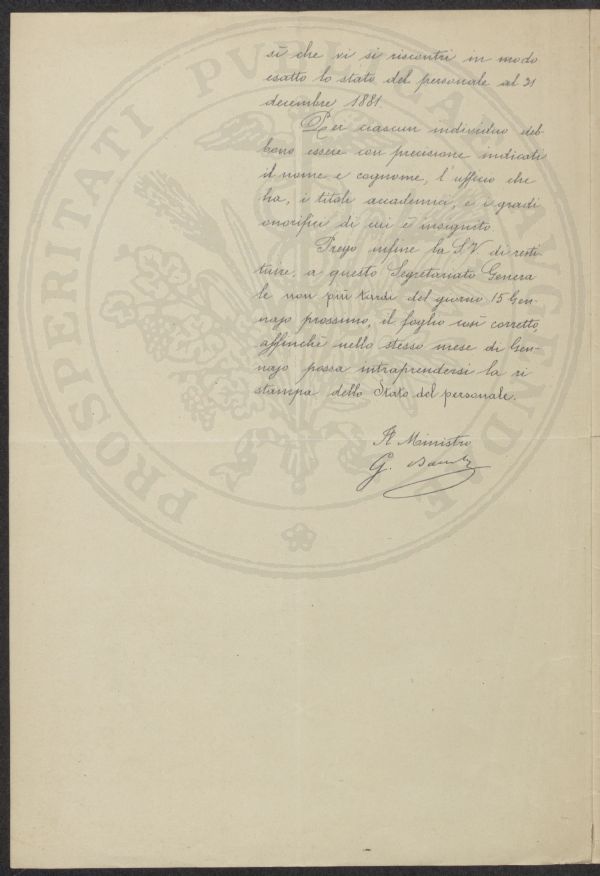 sì che vi si riscontri in modo
esatto lo stato del personale al 31
decembre 1881.
Per ciascun individuo deb
bono essere con precisione indicati
il nome e cognome, l'ufficio che
ha, i titoli accademici, e i gradi
onorifici di cui è insignito.
Prego infine la S.V. di resti
tuire, a questo Segretariato Genera
le non più tardi del giorno 15 Gen-
najo prossimo, il foglio così corretto,
affinchè nello stesso mese di Gen-
najo possa intraprendersi la ri
stampa dello Stato del personale.
Il Ministro
G.
PROSPERITATI PVBLICAE AVGENDAE